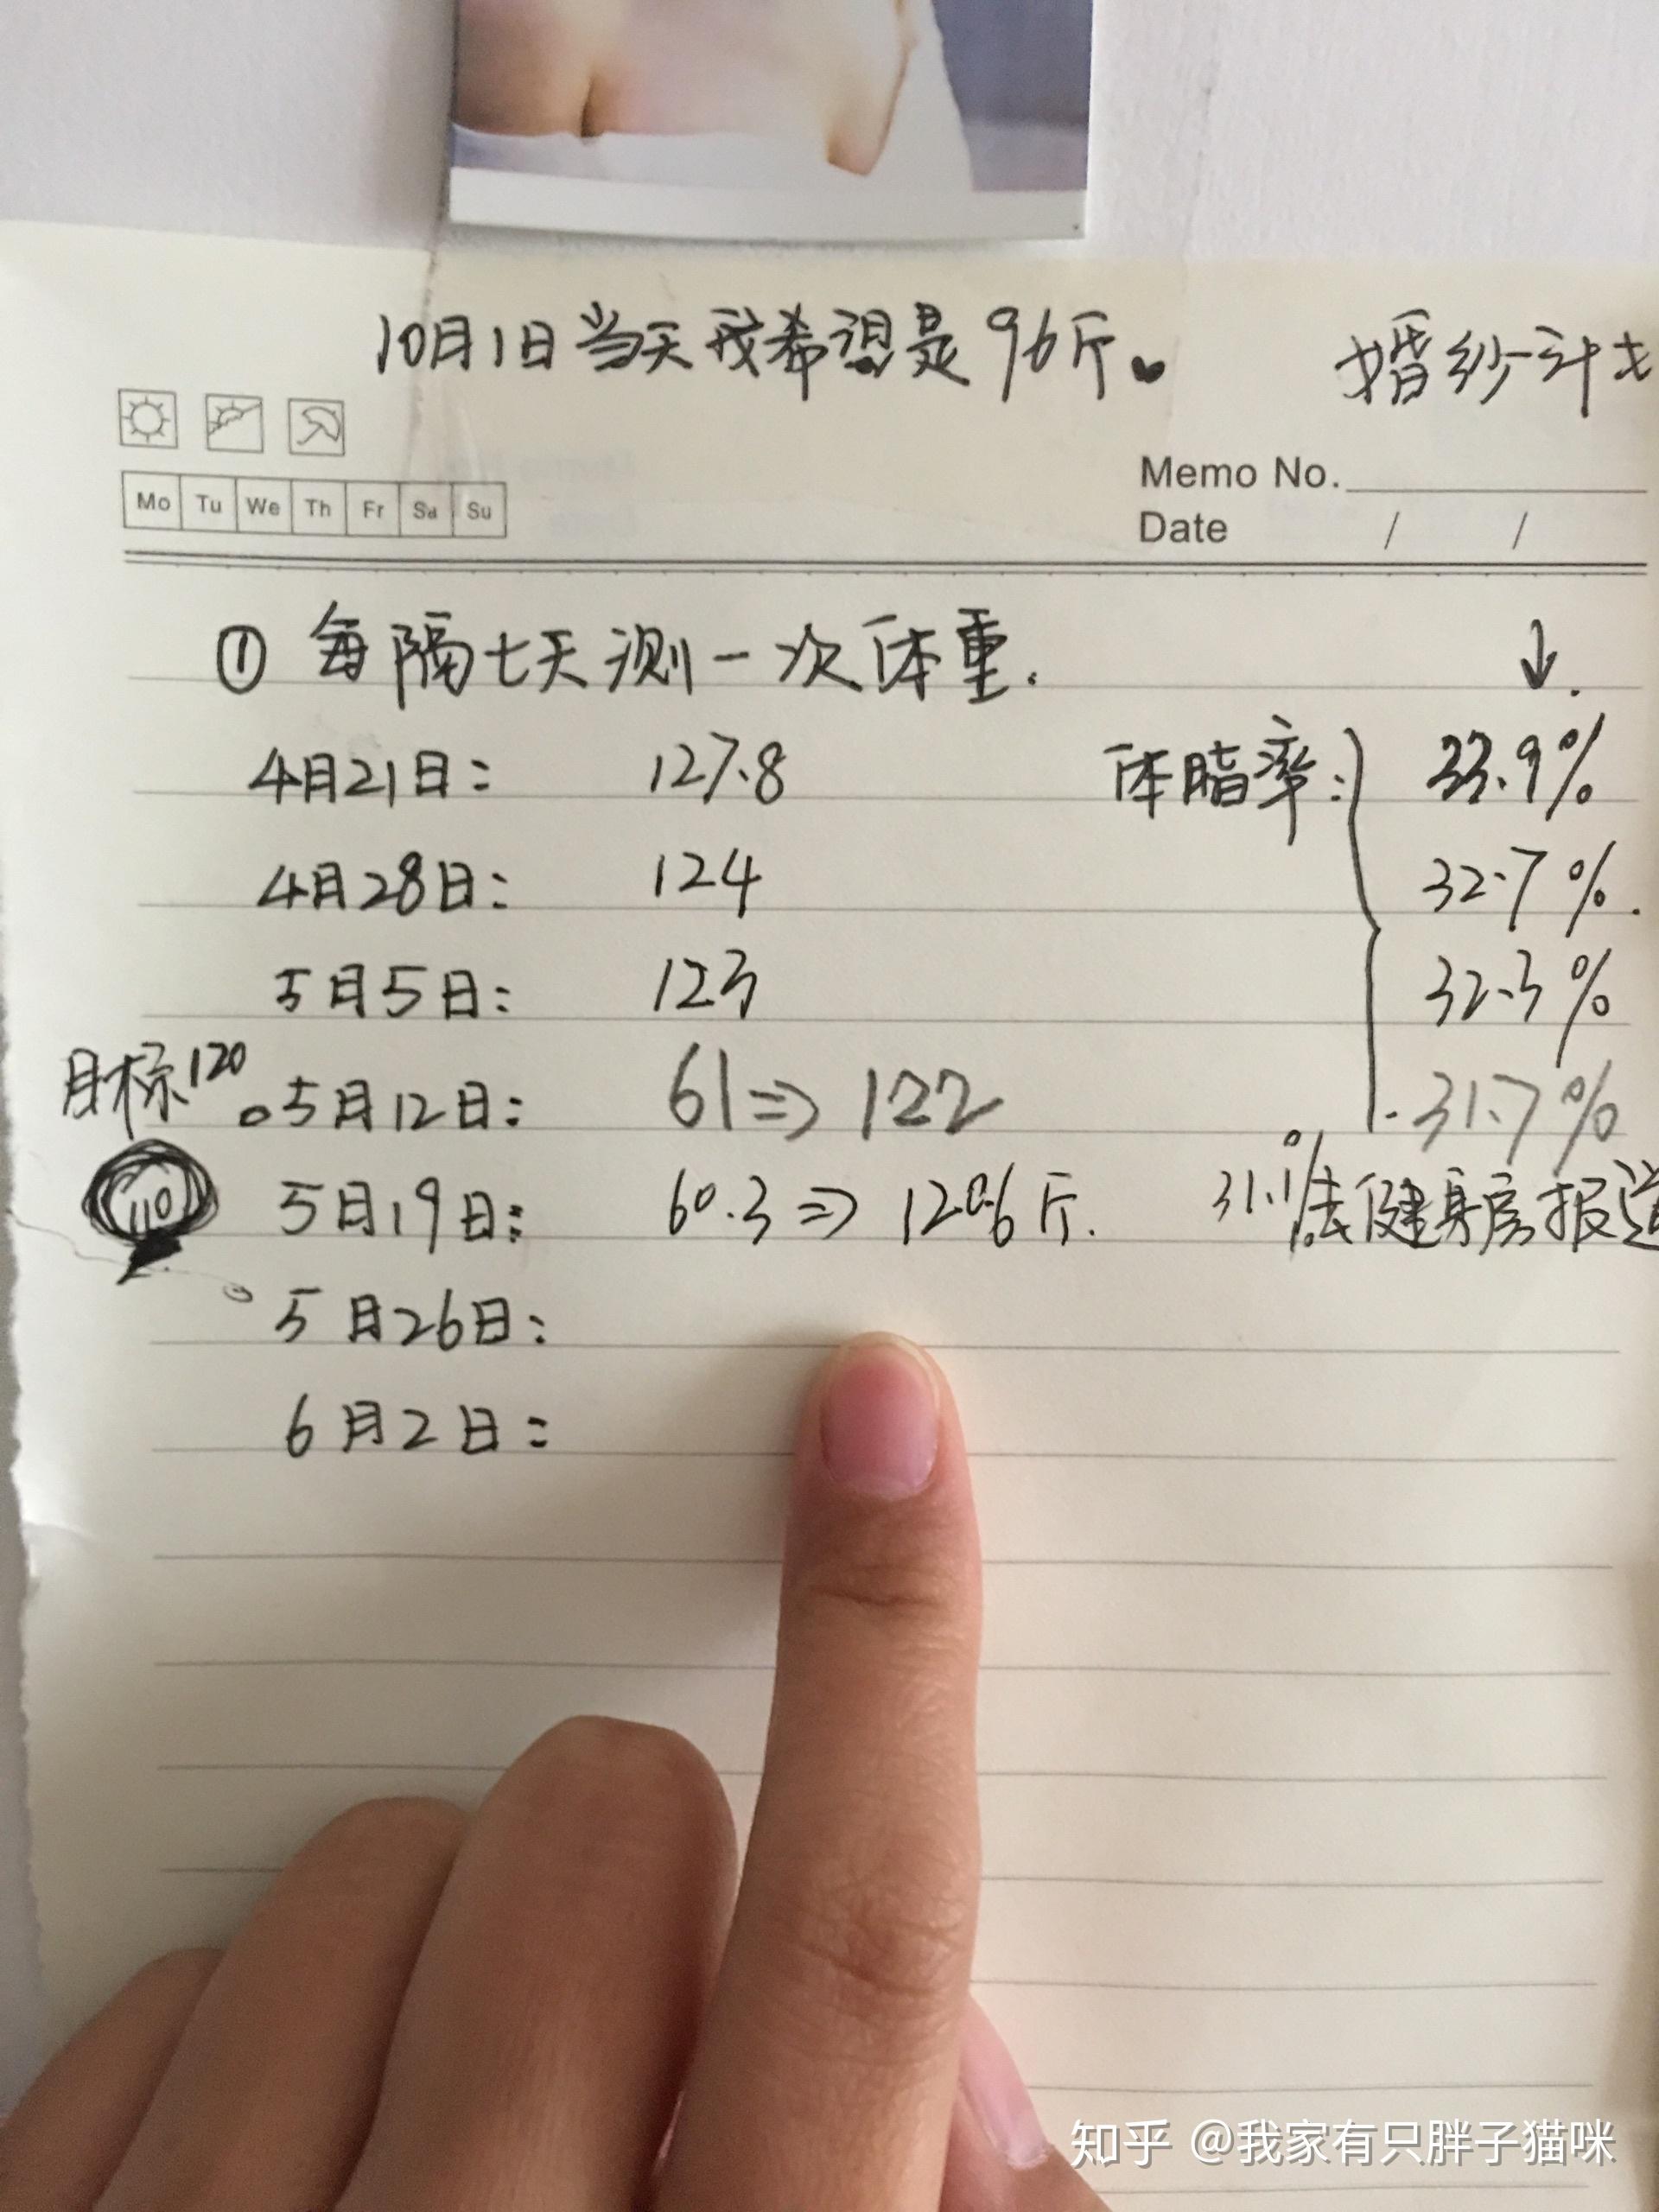 10月1日当天我希望是96斤。
婚纱计
Memo No.
Mo Tu We Th Fr Sa Su
Date / /
① 每隔七天测一次体重. ↓.
4月21日: 127.8 体脂率: 33.9%
4月28日: 124 32.7%.
5月5日: 123 32.3%
目标120 5月12日: 61⇒122 31.7%
110 5月19日: 60.3⇒120.6斤. 31.1%去健身房报道
5月26日:
6月2日:
知乎 @我家有只胖子猫咪